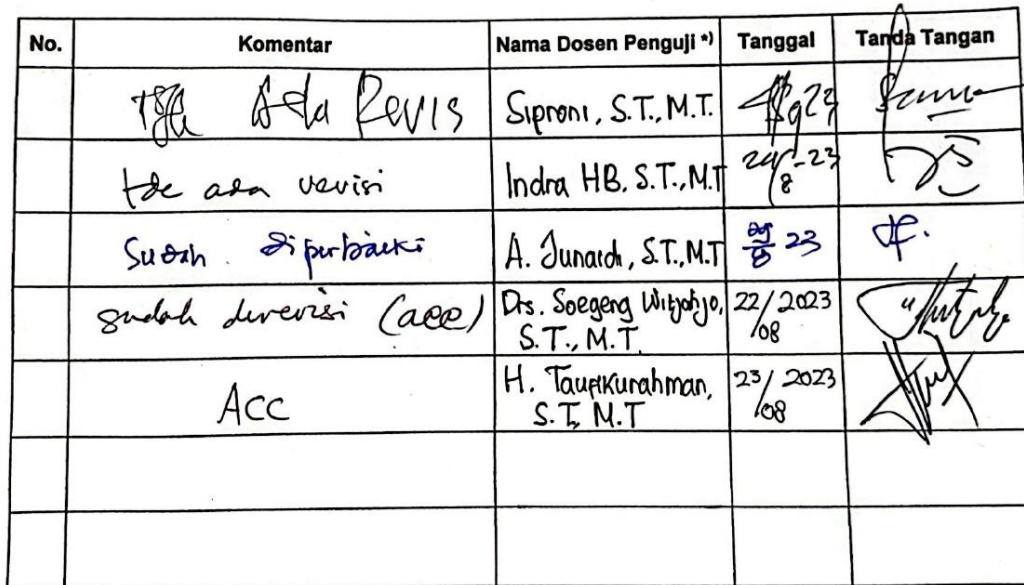 No. Komentar Nama Dosen Penguji *) Tanggal Tanda Tangan
Ada Revis Siproni, S.T., M.T.
ada revisi Indra HB. S.T., M.T 24/8-23
Sudah diperbaiki A. Junaidi, S.T., M.T 23
sudah direvisi (acc) Drs. Soegeng Witjahjo, 22/08 2023
S.T., M.T.
ACC H. Taufikurahman, 23/08 2023
S.T, M.T